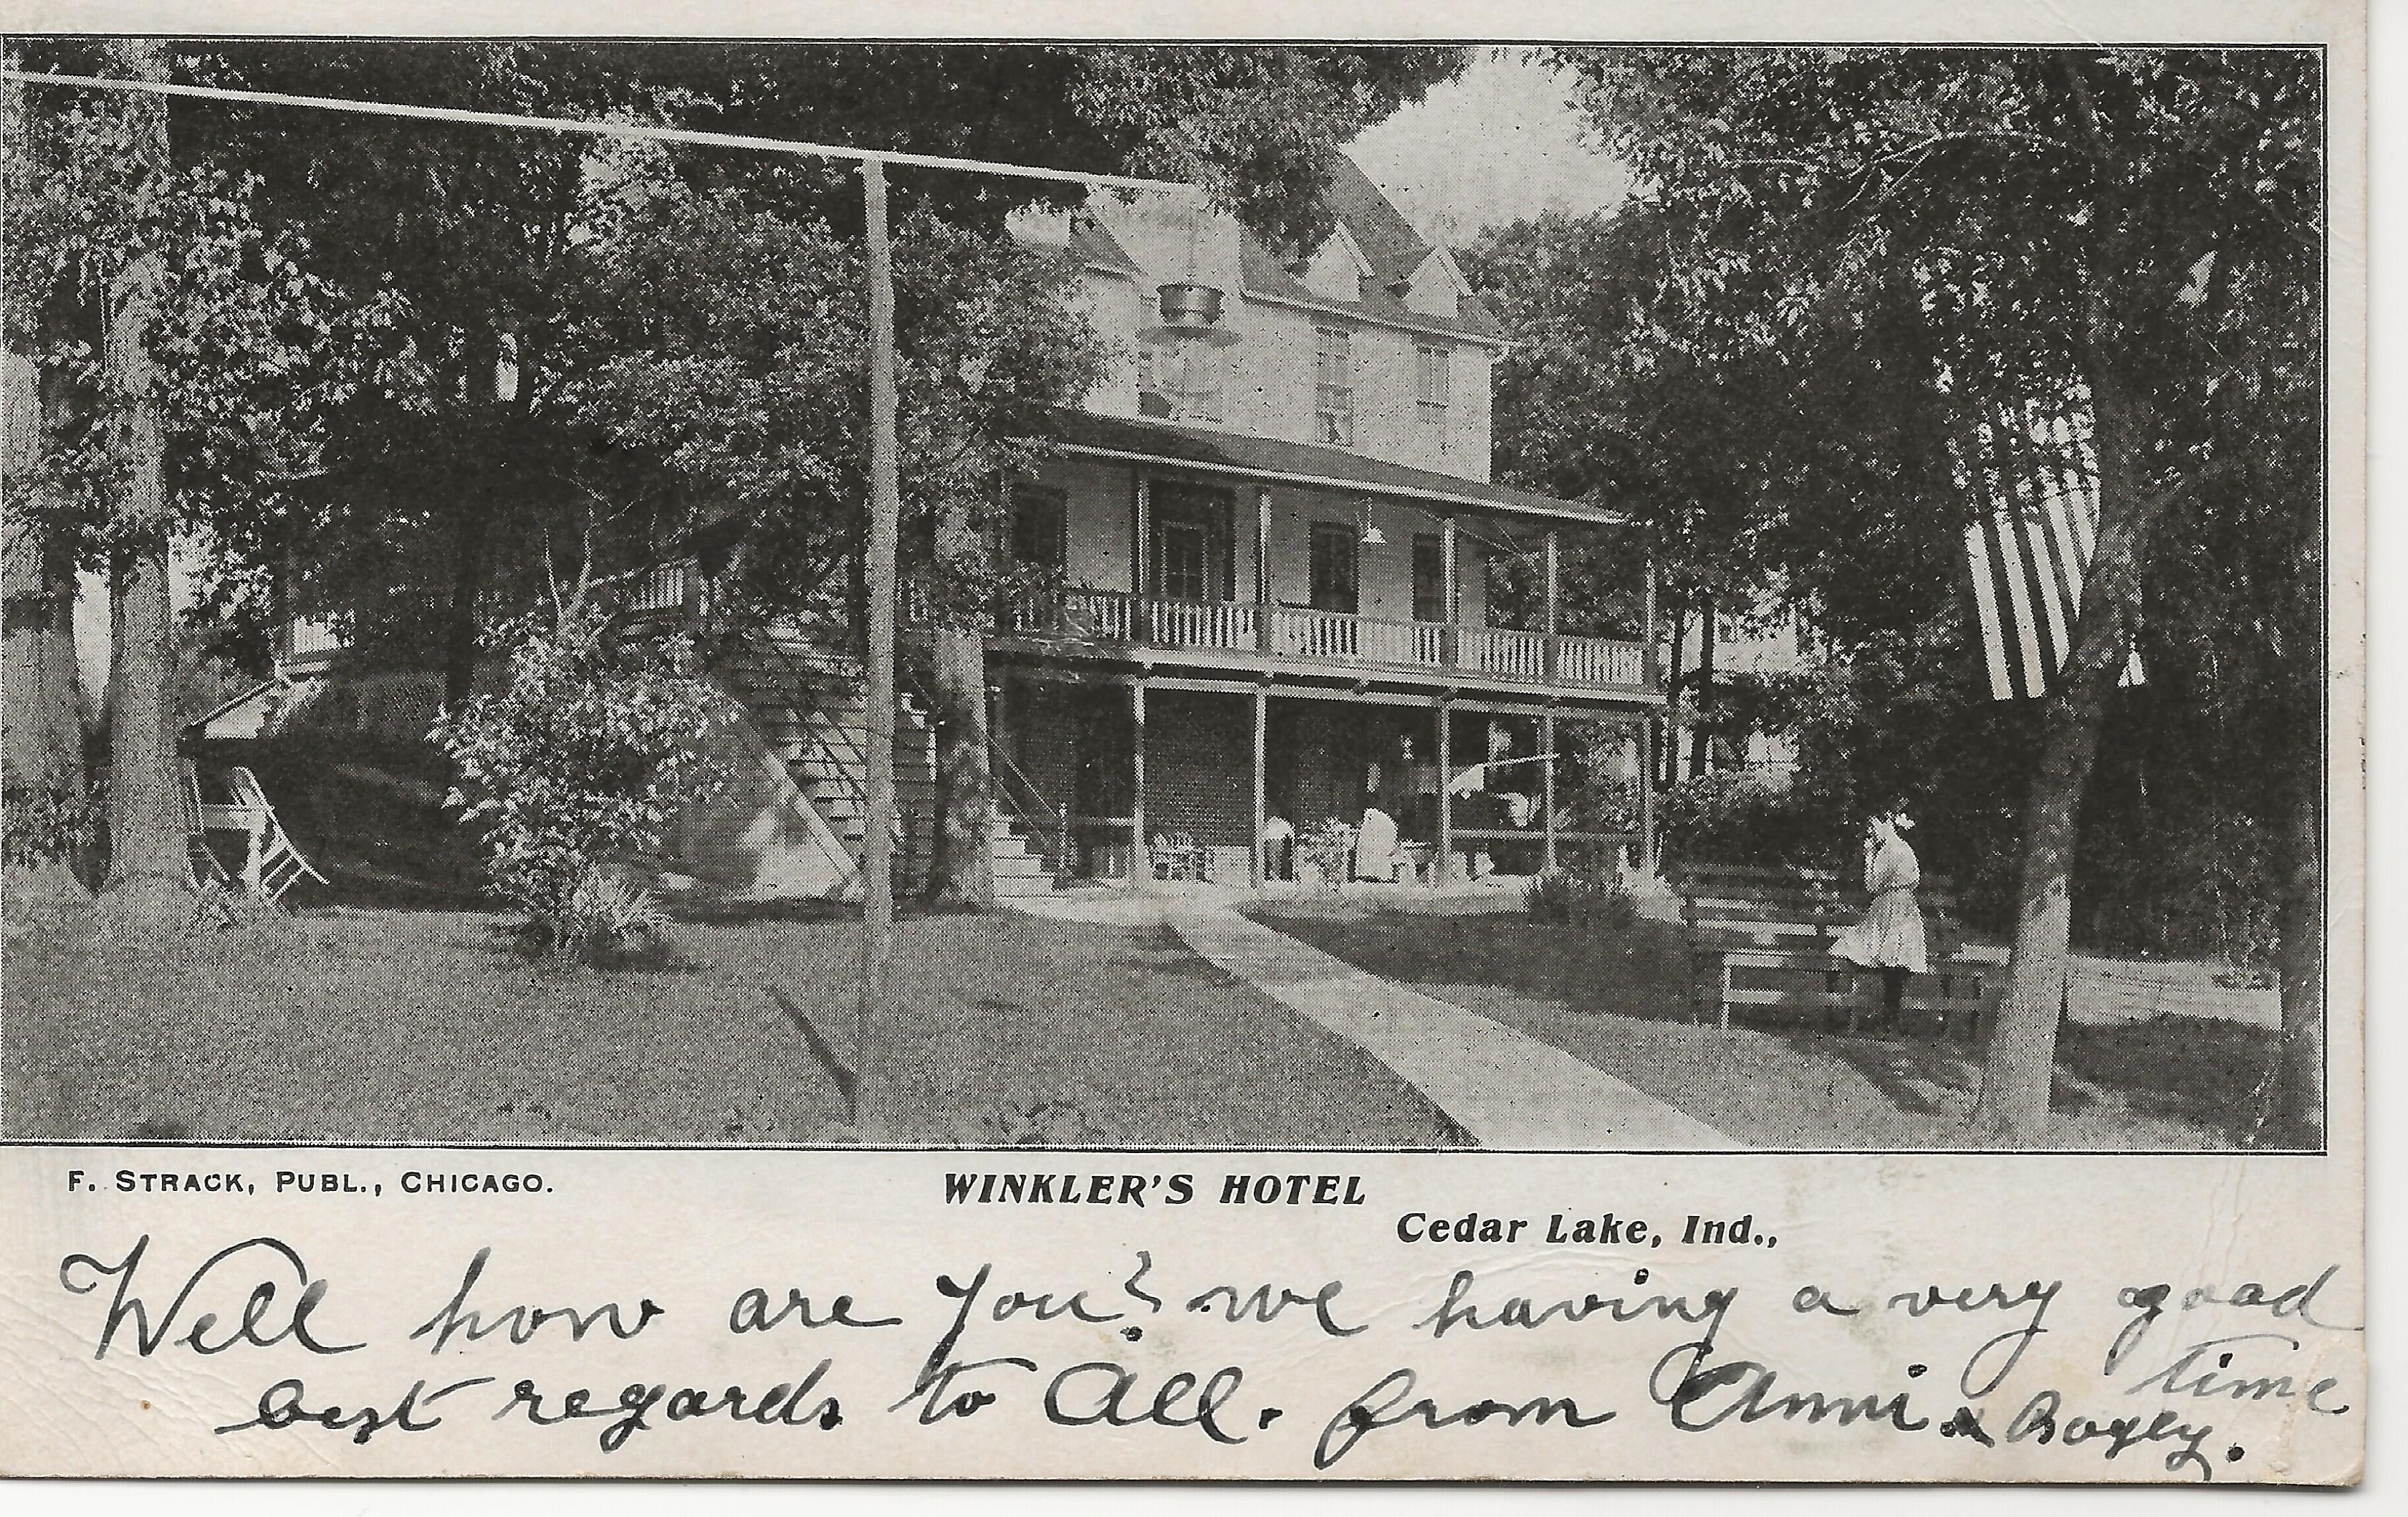 F. STRACK, PUBL., CHICAGO.
WINKLER'S HOTEL
Cedar Lake, Ind.,
Well how are you? we having a very good
time
best regards to All. from Anni &